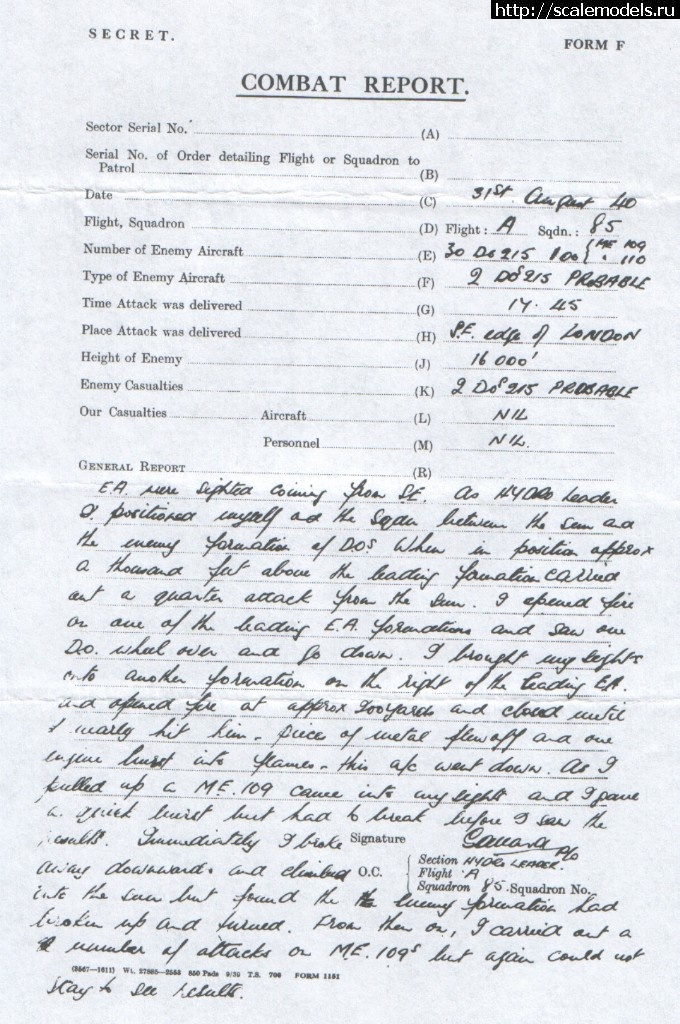 http://scalemodels.ru
SECRET.
FORM F
COMBAT REPORT.
Sector Serial No. (A)
Serial No. of Order detailing Flight or Squadron to
Patrol (B)
Date (C) 31st. August 40
Flight, Squadron (D) Flight: A Sqdn.: 85
Number of Enemy Aircraft (E) 30 Do 215 100 { ME 109 " 110
Type of Enemy Aircraft (F) 2 Dos 215 PROBABLE
Time Attack was delivered (G) 17.45
Place Attack was delivered (H) S.E. edge of LONDON
Height of Enemy (J) 16 000'
Enemy Casualties (K) 2 Dos 215 PROBABLE
Our Casualties Aircraft (L) NIL
Personnel (M) NIL.
GENERAL REPORT (R)
E.A. were sighted coming from S.E. As HYDRO leader
I positioned myself and the Sqdn between the sun and
the enemy formation of DOs When in position approx
a thousand feet above the leading formation carried
out a quarter attack from the sun. I opened fire
on one of the leading E.A. formations and saw one
D.O. wheel over and go down. I brought my sights
into another formation on the right of the leading E.A.
and opened fire at approx 200 yards and closed until
I nearly hit him - piece of metal flew off and one
engine burst into flames - this a/c went down. As I
pulled up a ME.109 came into my sight and I gave
a quick burst but had to break before I saw the
results. Immediately I broke Signature P/O
away downwards and climbed O.C. { Section HYDRO LEADER.
Flight A
Squadron 85. Squadron No.
into the sun but found the the enemy formation had
broken up and turned. From then on, I carried out a
number of attacks on M.E. 109s but again could not
(3567—1611) Wt. 27885—2553 850 Pads 9/39 T.S. 700 FORM 1151
stay to see results.